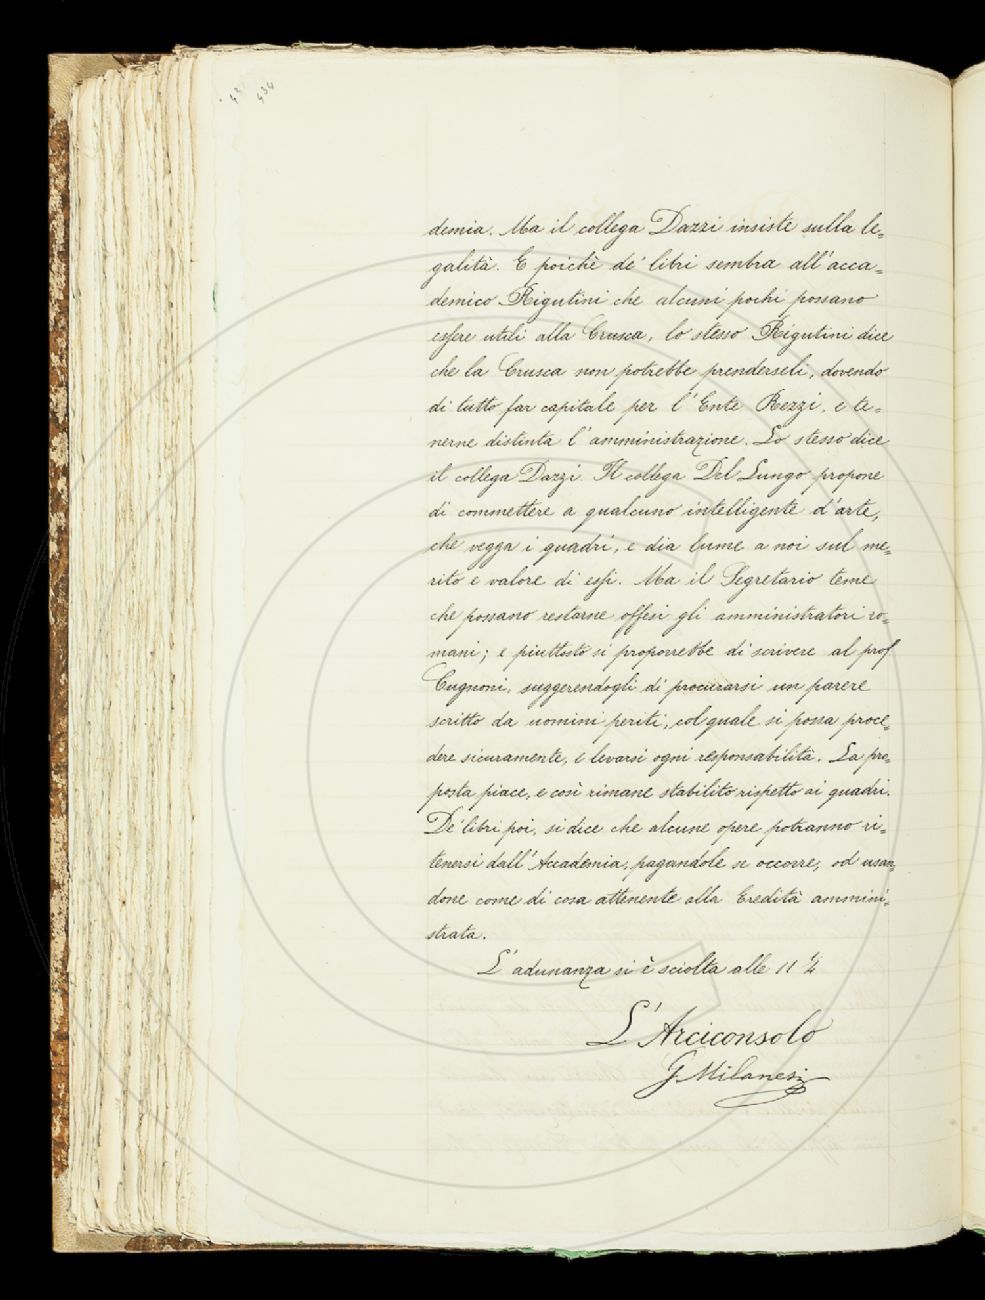 434
demia. Ma il collega Dazzi insiste sulla le=
galità. E poichè de' libri sembra all'acca=
demico Rigutini che alcuni pochi possano
essere utili alla Crusca, lo stesso Rigutini dice
che la Crusca non potrebbe prenderseli, dovendo
di tutto far capitale per l'Ente Rezzi, e te=
nerne distinta l'amministrazione. Lo stesso dice
il collega Dazzi. Il collega Del Lungo propone
di commettere a qualcuno intelligente d'arte,
che vegga i quadri, e dia lume a noi sul me=
rito e valore di essi. Ma il Segretario teme
che possano restarne offesi gli amministratori ro=
mani; e piuttosto si proporrebbe di scrivere al prof
Cugnoni, suggerendogli di procurarsi un parere
scritto da uomini periti, col quale si possa proce=
dere sicuramente, e levarsi ogni responsabilità. La pro=
posta piace, e così rimane stabilito rispetto ai quadri.
De' libri poi, si dice che alcune opere potranno ri=
tenersi dall'Accademia, pagandole se occorre, od usan=
done come di cosa attenente alla Eredità ammini=
strata.
L'adunanza si è sciolta alle 11 ¼
L'Arciconsolo
G Milanesi